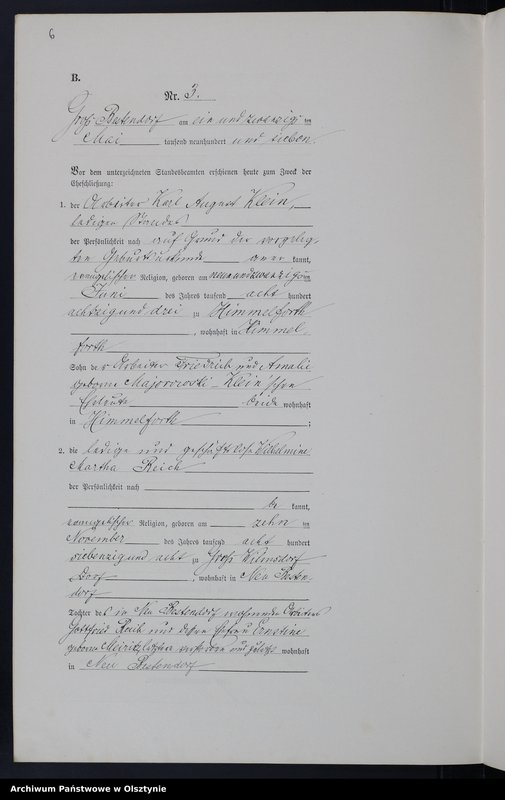 6
B.
Nr. 3.
Groß Bestendorf am ein und zwanzig ten
Mai tausend neunhundert und sieben.
Vor dem unterzeichneten Standesbeamten erschienen heute zum Zweck der
Eheschließung:
1. der Arbeiter Karl August Klein,
ledigen Standes
der Persönlichkeit nach auf Grund der vorgeleg-
ten Geburtsurkunde aner kannt,
evangelischer Religion, geboren am neunundzwanzigsten
Juni des Jahres tausend acht hundert
achtzig und drei zu Himmelforth
, wohnhaft in Himmel-
forth
Sohn der Arbeiter Friedrich und Amalie
geborne Majorowski - Klein'schen
Eheleute beide wohnhaft
in Himmelforth ;
2. die ledige und geschäftslose Wilhelmine
Martha Reich
der Persönlichkeit nach
be kannt,
evangelischer Religion, geboren am zehn ten
November des Jahres tausend acht hundert
siebenzig und acht zu Groß Wilmsdorf
Dorf , wohnhaft in Neu Besten-
dorf
Tochter des in Neu Bestendorf wohnenden Arbeiters
Gottfried Reich und dessen Ehefrau Ernestine
geborne verstorben und zuletzt wohnhaft
in Neu Bestendorf
Archiwum Państwowe w Olsztynie